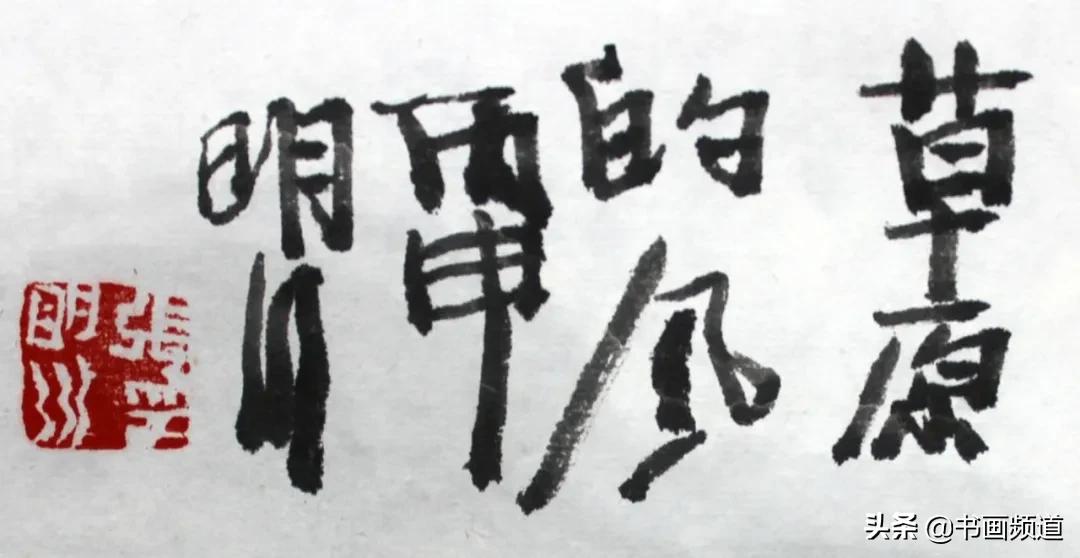 草原
的风
丙申
明川
張
明川
头条 @书画频道